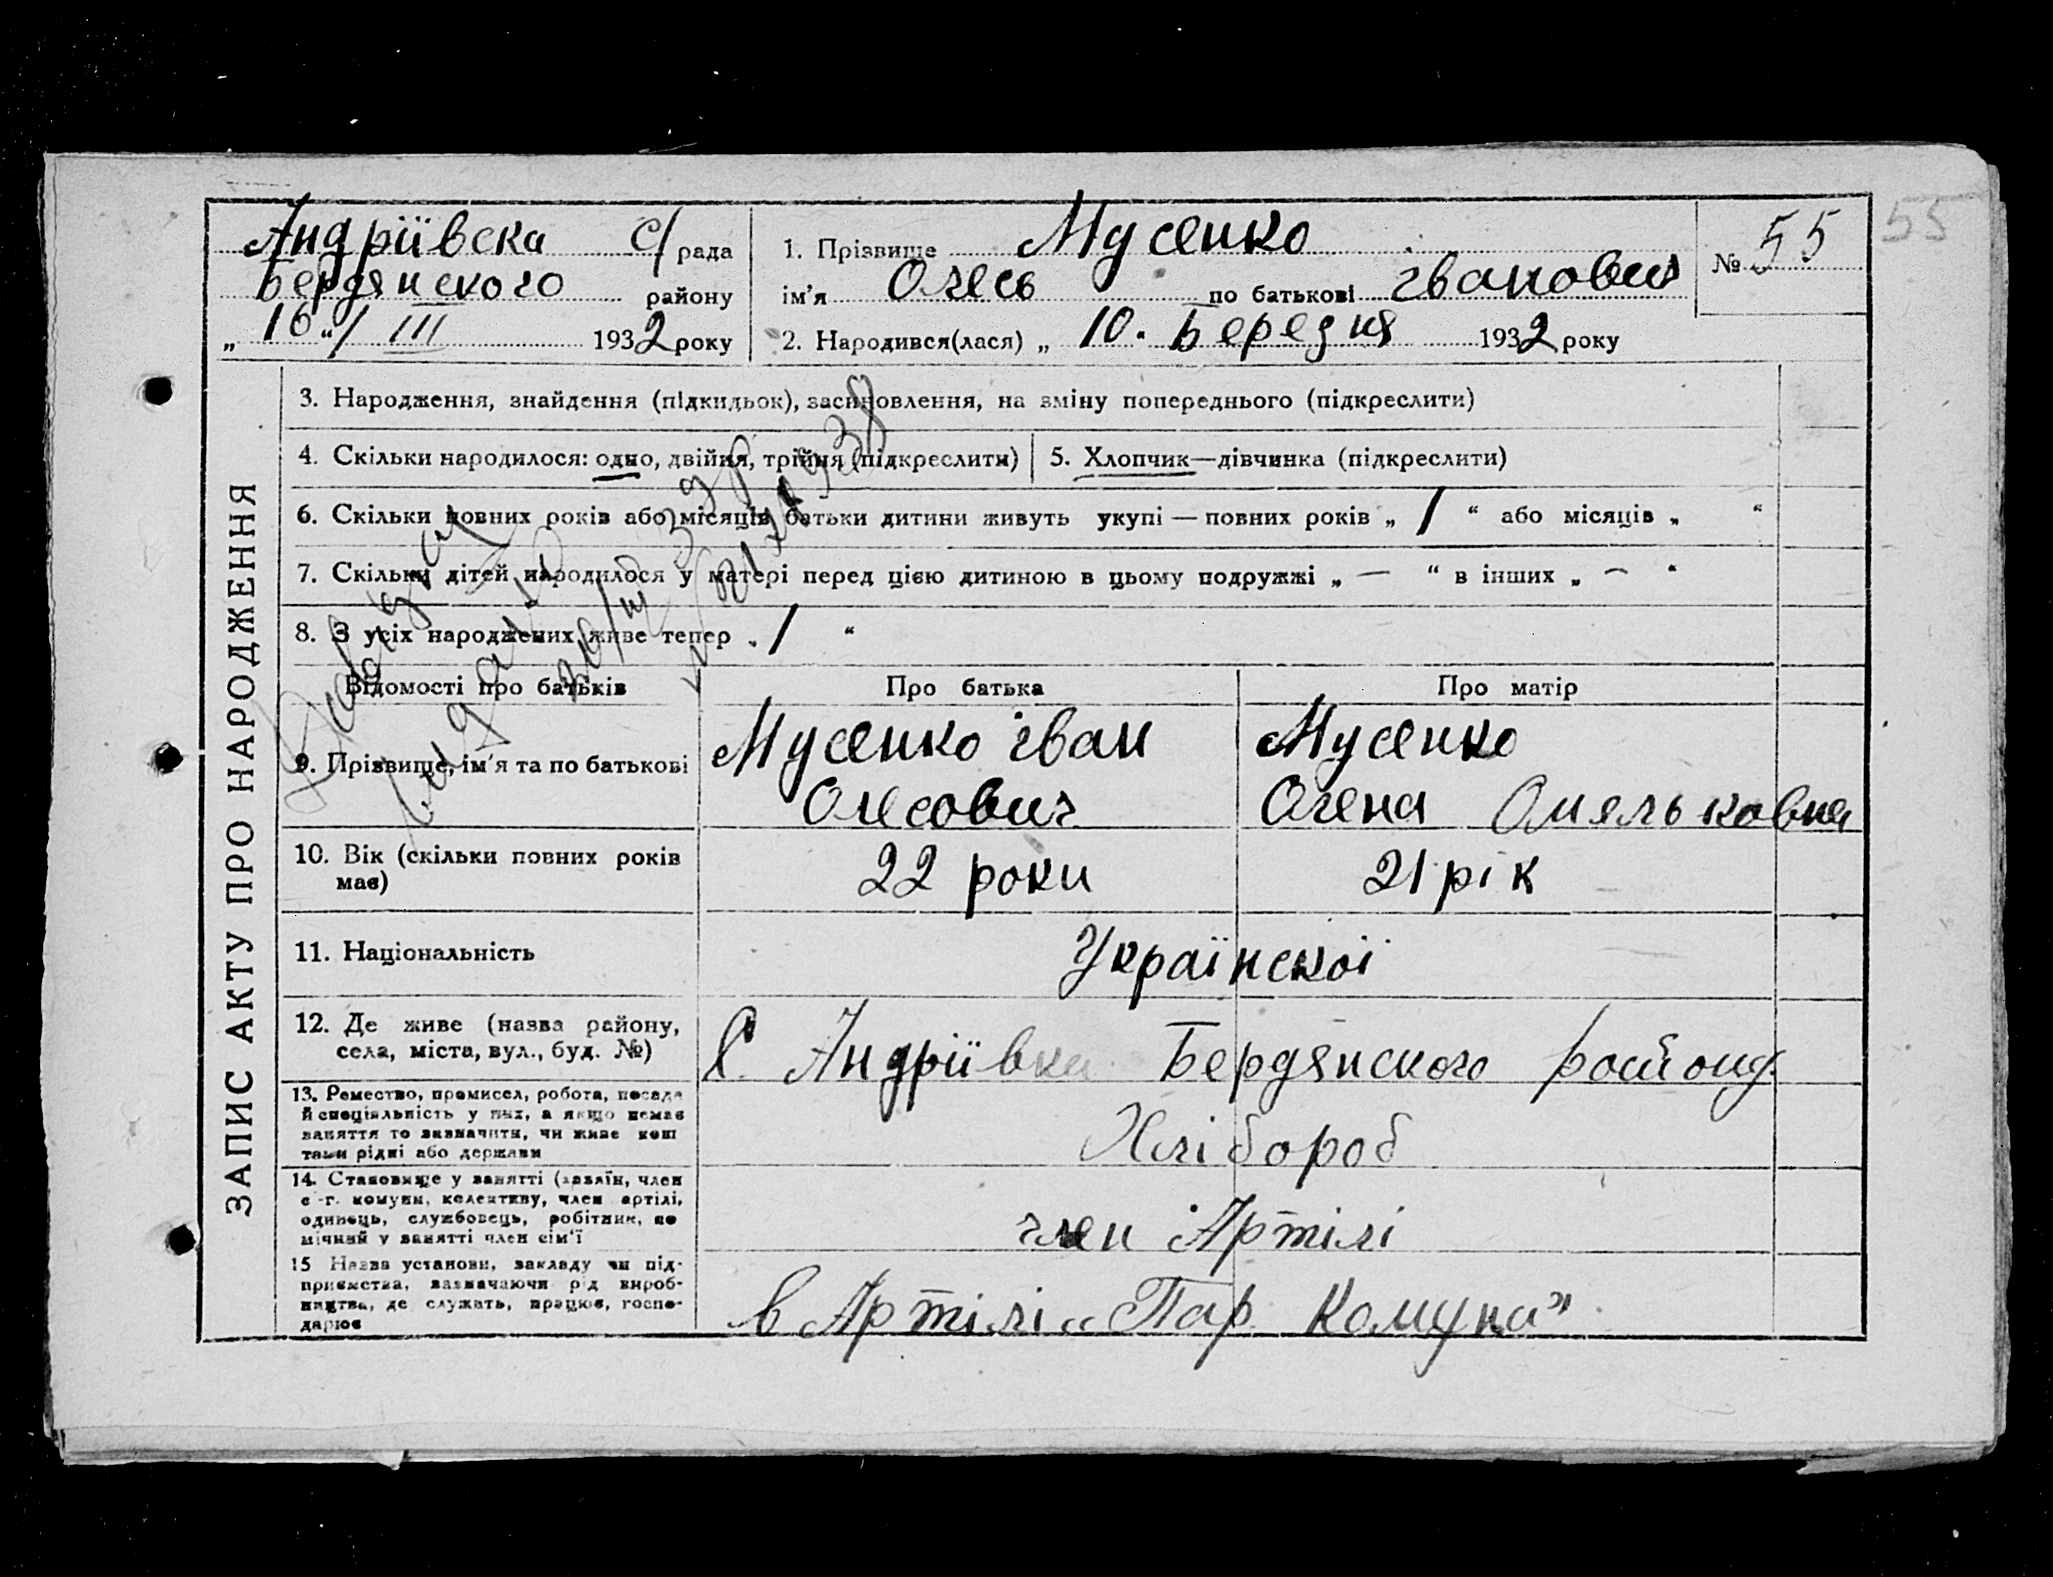 Андріївска с/рада
Бердянского району
„ 16 “/ III 1932 року
1. Прізвище Мусенко
ім’я Олесь по батькові Іванович
2. Народився(лася) „ 10 “ Березня 1932 року
№ 55
55
ЗАПИС АКТУ ПРО НАРОДЖЕННЯ
3. Народження, знайдення (підкидьок), засиновлення, на зміну попереднього (підкреслити)
4. Скільки народилося: одно, двійня, трійня (підкреслити)
5. Хлопчик—дівчинка (підкреслити)
6. Скільки повних років або місяців батьки дитини живуть укупі — повних років „ 1 “ або місяців „ “
7. Скільки дітей народилося у матері перед цією дитиною в цьому подружжі „ — “ в інших „ — “
8. З усіх народжених живе тепер „ 1 “
Відомості про батьків
Про батька
Про матір
9. Прізвище, ім’я та по батькові
Мусенко Іван
Олесович
Мусенко
Олена Омельковна
10. Вік (скільки повних років
має)
22 роки
21 рік
11. Національність
Українскої
12. Де живе (назва району,
села, міста, вул., буд. №)
С. Андріївка Бердянского району
13. Ремество, промисел, робота, посада
й спеціяльність у них, а якщо немає
заняття то зазначити, чи живе кош
тами рідні або держави
Хлібороб
14. Становище у занятті (хазяїн, член
с.-г. комуни, колективу, член артілі,
одинець, службовець, робітник, по
мічний у занятті член сім’ї
член Артілі
15 Назва установи, закладу чи під-
приємства, зазначаючи рід вироб-
ництва, де служать, працює, госпо-
дарює
в Артілі „Пар Комуна”